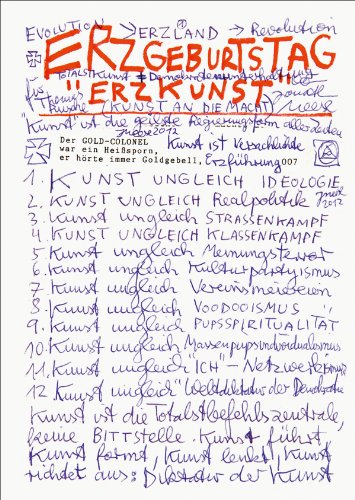 EVOLUTION > ERZLAND > Revolution
ERZGEBURTSTAG
TOTALSTKunst = Demokratenunterhaltung
"ERZKUNST"
für Thomas Rusche (KUNST AN DIE MACHT) Jonathan Meese
"Kunst" ist die geilste Regierungsform aller Zeiten
Meese 2012
Der GOLD-COLONEL
war ein Heißsporn,
er hörte immer Goldgebell,
Kunst ist Verschlichte
Erzführung 007
1. KUNST UNGLEICH IDEOLOGIE
2. KUNST UNGLEICH Realpolitik
Meese 2012
3. Kunst ungleich STRASSENKAMPF
4. KUNST UNGLEICH KLASSENKAMPF
5. Kunst ungleich Meinungsterror
6. Kunst ungleich Kulturpartyismus
7. Kunst ungleich Vereinsmeierein
8. Kunst ungleich VOODOOISMUS
9. Kunst ungleich PUPSSPIRITUALITÄT
10. Kunst ungleich Massenpupsindividualismus
11. Kunst ungleich "ICH" – Netzwerkismus
12. Kunst ungleich "Weltdiktatur der Demokratie
Kunst ist die Totalstbefehlszentrale,
keine BITTSTELLE. Kunst führt,
Kunst formt, Kunst lenkt, Kunst
richtet aus: Diktatur der Kunst